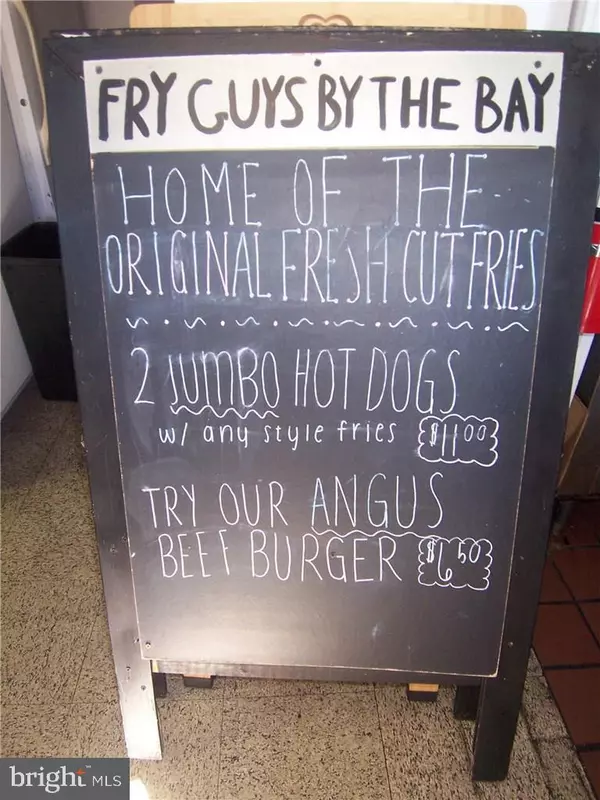 FRY GUYS BY THE BAY
HOME OF THE
ORIGINAL FRESH CUT FRIES
2 JUMBO HOT DOGS
w/ any style fries $11.00
TRY OUR ANGUS
BEEF BURGER $6.50
bright MLS